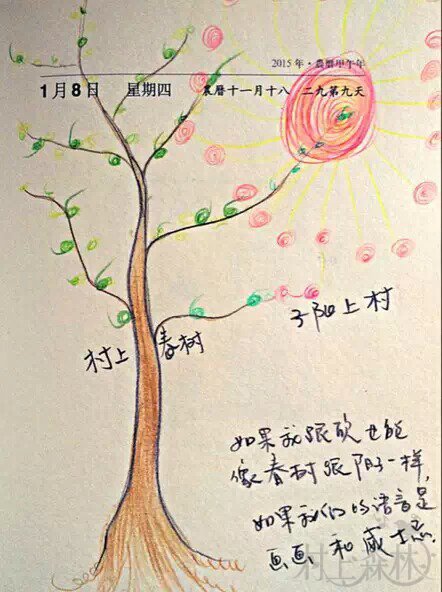 2015 年·農曆甲午年
1月8日 星期四 農曆十一月十八 二九第九天
子阳上村
村上 春树
如果我跟 也能
像春树跟阳子一样,
如果我们的语言是
画画 和 威士忌.
村上森林